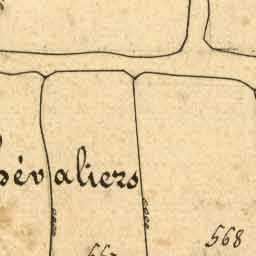 hévaliers
568